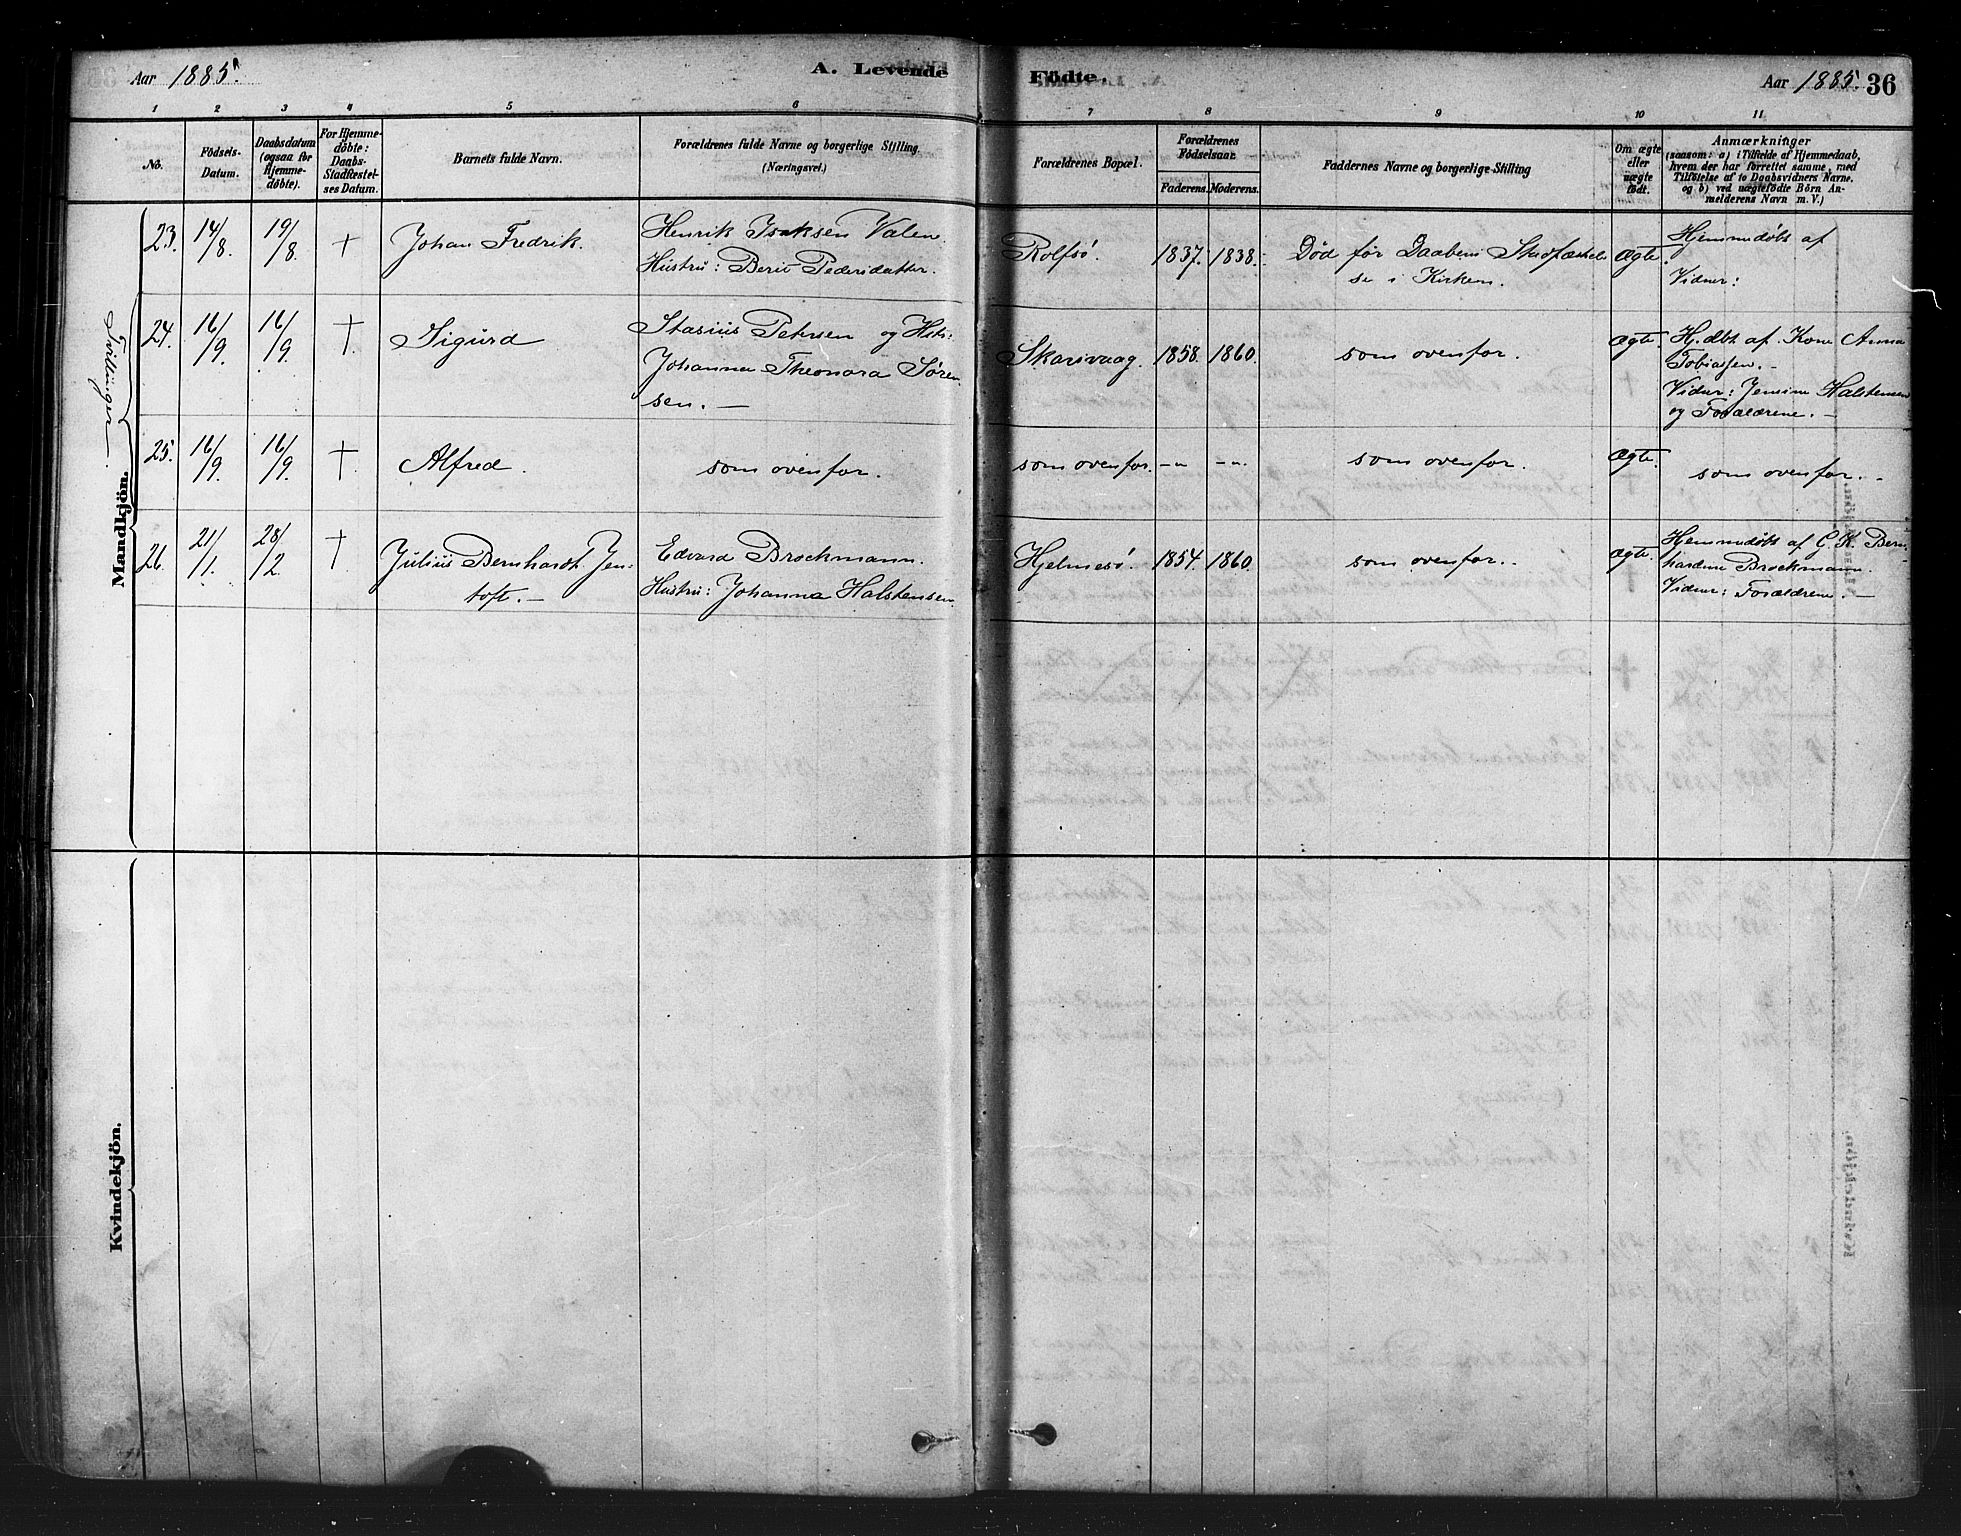 Aar 1885.
A. Levende
Födte.
Aar 1885.
36
1 2 3 4 5 6 7 8 9 10 11
No.
Födsels-
Datum.
Daabsdatum
(ogsaa for
Hjemme-
döbte).
For Hjemme-
döbte:
Daabs-
Stadfæstel-
ses Datum.
Barnets fulde Navn.
Forældrenes fulde Navne og borgerlige Stilling.
(Næringsvei.)
Forældrenes Bopæl.
Forældrenes
Födselsaar.
Faderens. Moderens.
Faddernes Navne og borgerlige Stilling
Om ægte
eller
uægte
födt.
Anmærkninger
(saasom: a) i Tilfælde af Hjemmedaab,
hvem der har forrettet samme, med
Tilföielse af to Daabsvidners Navne,
og b) ved uægtefödte Börn An-
melderens Navn m. V.)
Mandkjön.
Tvillinger.
23. 14/8 19/8 +
Johan Fredrik.
Henrik Isaksen Valen
Hustru: Berit Pedersdatter.
Rolfsö.
1837. 1838.
Död för Daabens Stadfæstel-
se i Kirken.
Ægte.
Hjemmedöbt af
Vidner:
24. 16/9 16/9 +
Sigurd
Stasius Petersen og Hstr.
Johanna Theonora Sören-
sen. —
Skarsvaag. 1858. 1860.
som ovenfor.
Ægte.
H.dbt. af Kone Anna
Tobiassen. —
Vidner: Jensine Halstensen
og Forældrene. —
25. 16/9 16/9 +
Alfred.
som ovenfor.
som ovenfor. -"- -"-
som ovenfor.
Ægte.
som ovenfor. -
26. 21/1 28/2 +
Julius Bernhardt Jen-
toft. —
Edvard Brockmann.
Hustru: Johanna Halstensen.
Hjelmesö. 1854. 1860.
som ovenfor.
Ægte.
Hemmedöbt af G. K. Bern-
hardine Brockmann.
Vidner: Forældrene. —
Kvindekjön.